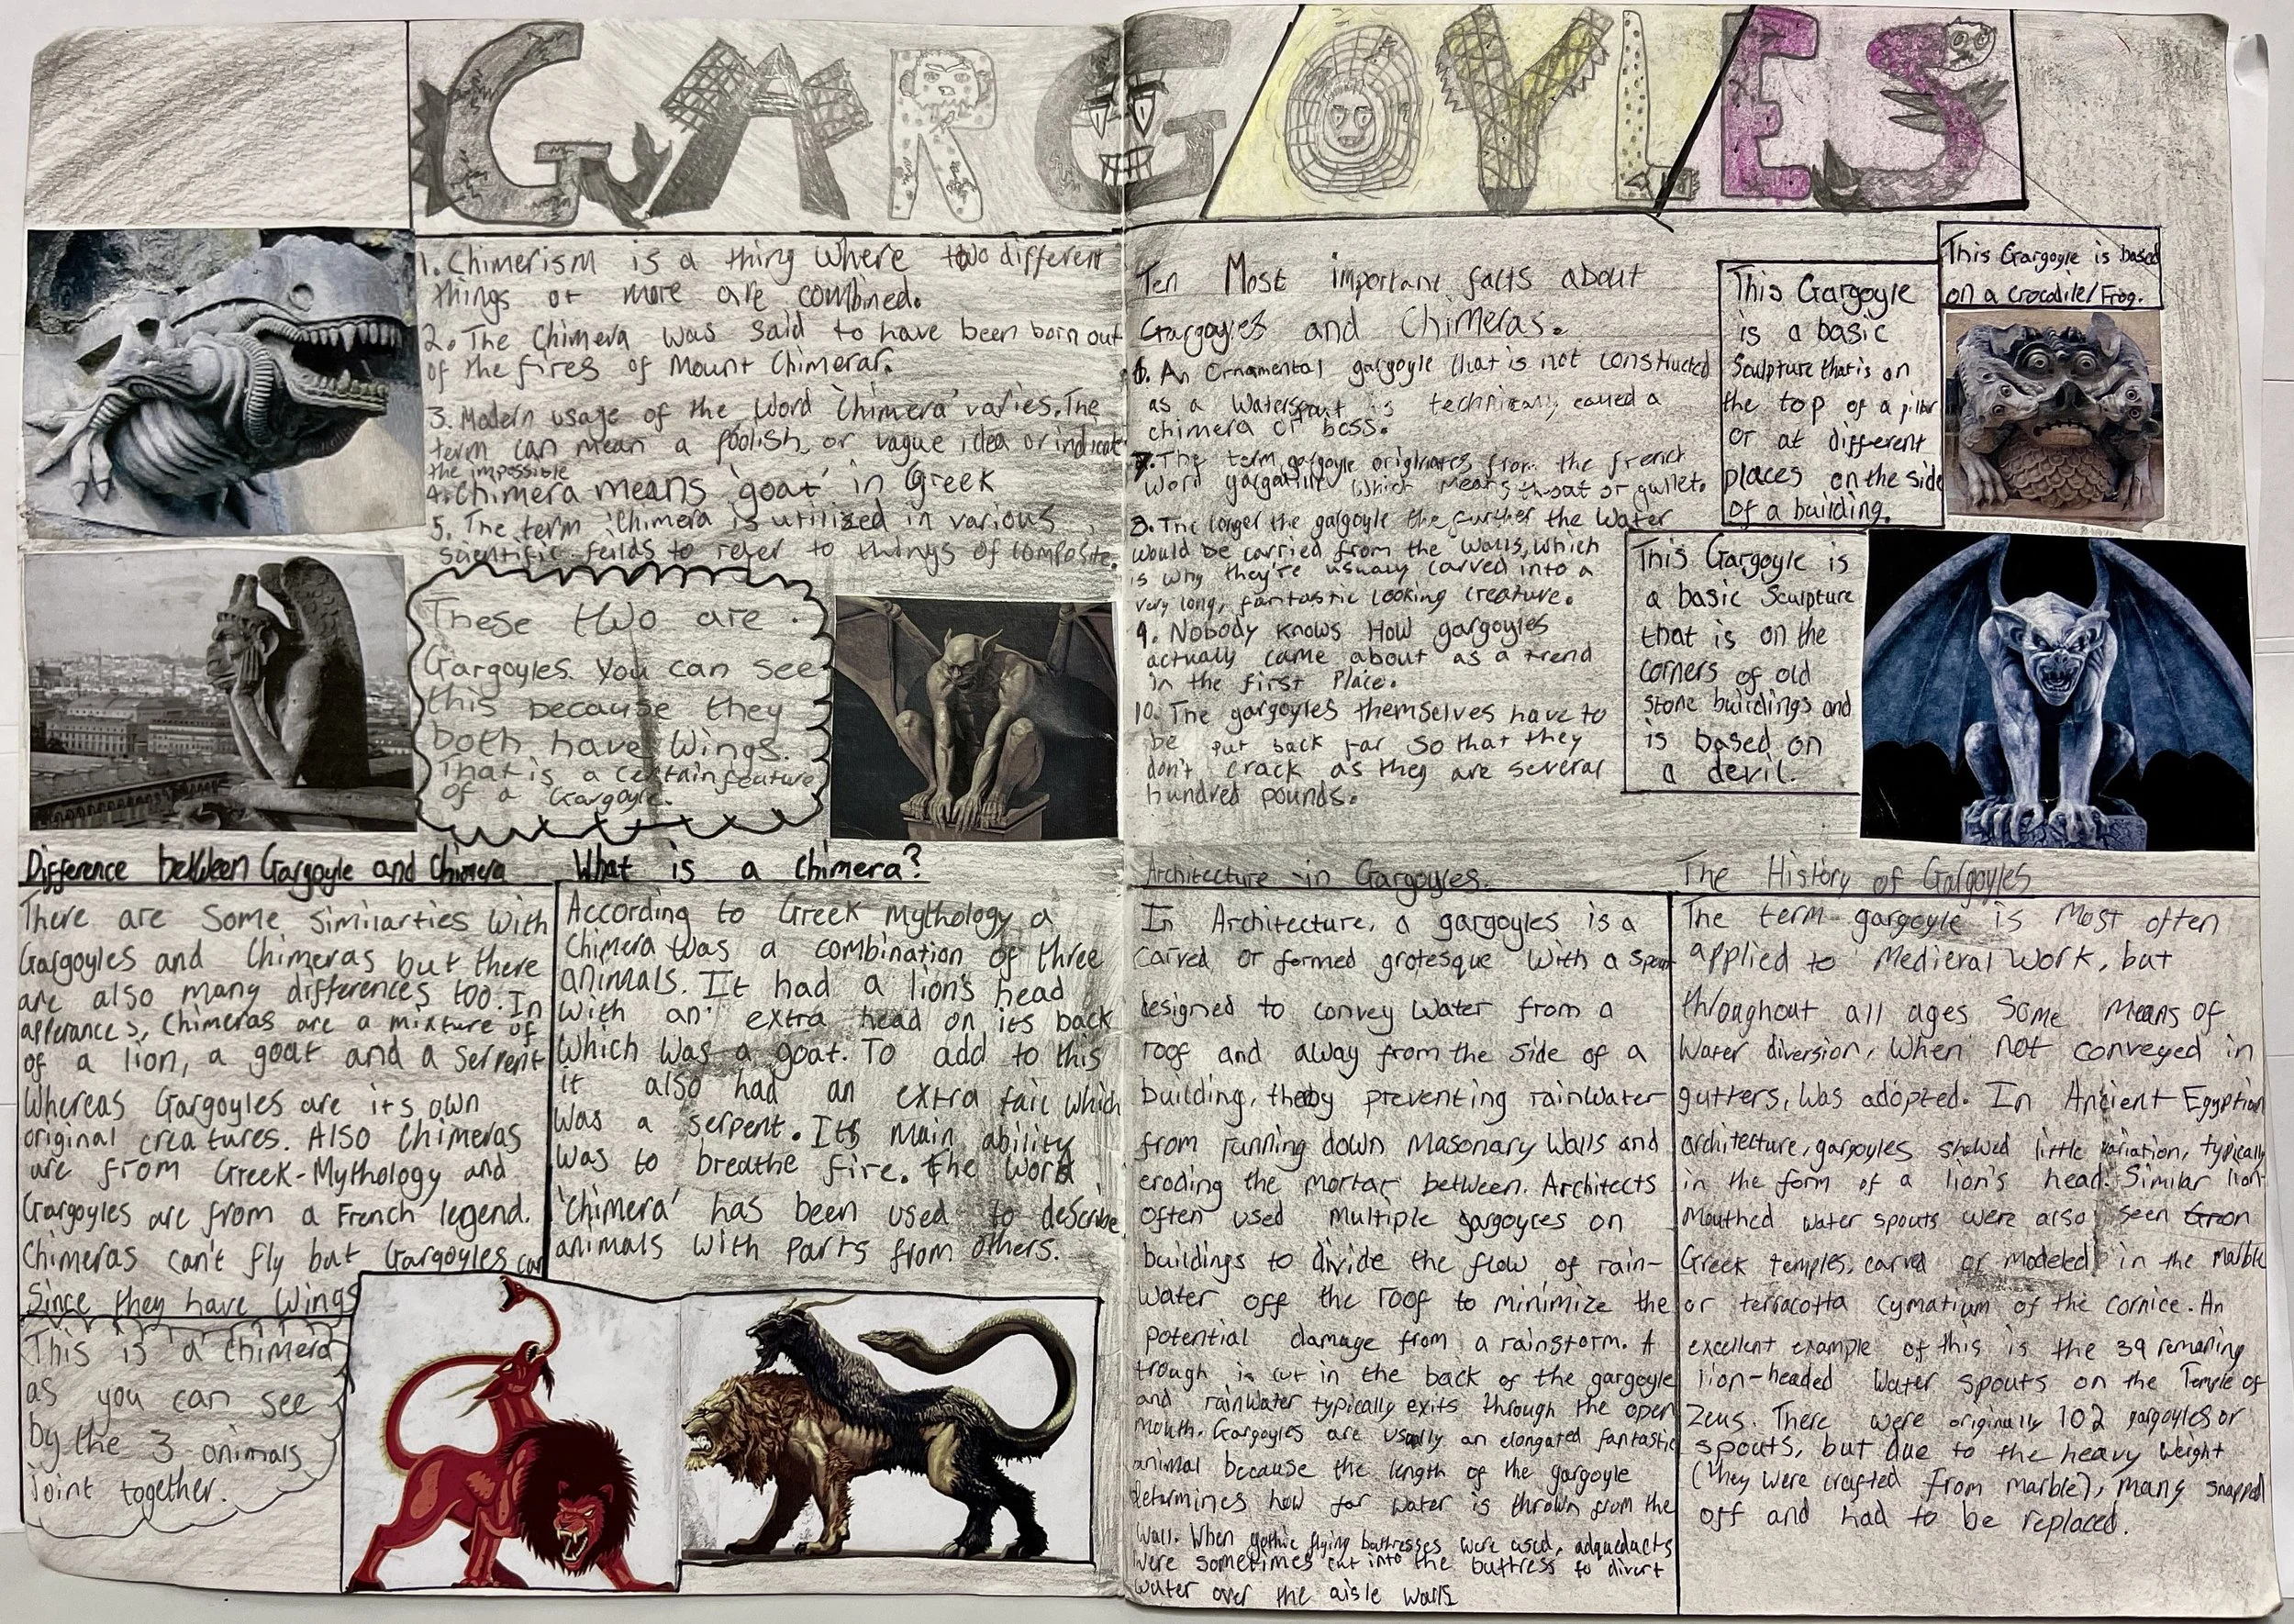 GARGOYLES
1. Chimerism is a thing where two different
things or more are combined.
2. The Chimera was said to have been born out
of the fires of Mount Chimerar.
3. Modern usage of the word 'Chimera' varies. The
term can mean a foolish, or vague idea or indicate
the impossible
4. Chimera means 'goat' in Greek
5. The term 'Chimera is utilized in various
scientific feilds to refer to things of composite.
These two are
Gargoyles. You can see
this because they
both have wings.
That is a certain feature
of a Gargoyle.
Difference between Gargoyle and Chimera
There are some similarties with
Gargoyles and Chimeras but there
are also many differences too. In
apperances, Chimeras are a mixture of
of a lion, a goat and a serpent
Whereas Gargoyles are its own
original creatures. Also Chimeras
are from Greek-Mythology and
Gargoyles are from a French legend.
Chimeras can't fly but Gargoyles can
Since they have wings
This is a chimera
as you can see
by the 3 animals
joint together.
What is a Chimera?
According to Greek mythology a
Chimera was a combination of three
animals. It had a lion's head
with an extra head on its back
which was a goat. To add to this
it also had an extra tail which
was a serpent. Its main ability
was to breathe fire. The word
'Chimera' has been used to describe
animals with parts from others.
Ten Most important facts about
Gargoyles and Chimeras.
6. An Ornamental gargoyle that is not constructed
as a Waterspout is technically called a
chimera or boss.
7. The term gargoyle originates from the french
word which means throat or gullet.
8. The longer the gargoyle the further the water
would be carried from the walls, which
is why they're usually carved into a
very long, fantastic looking creature.
9. Nobody knows How gargoyles
actually came about as a trend
in the first Place.
10. The gargoyles themselves have to
be put back far so that they
don't crack as they are several
hundred pounds.
This Gargoyle
is a basic
Sculpture that is on
the top of a pillar
or at different
places on the side
of a building.
This Gargoyle is based
on a crocodile/Frog.
This Gargoyle is
a basic Sculpture
that is on the
corners of old
stone buildings and
is based on
a devil.
Architecture in Gargoyles.
In Architecture, a gargoyles is a
carved or formed grotesque with a spout
designed to convey water from a
roof and away from the side of a
building, thereby preventing rainwater
from running down masonary walls and
eroding the mortar between. Architects
often used multiple gargoyles on
buildings to divide the flow of rain-
water off the roof to minimize the
potential damage from a rainstorm. A
trough is cut in the back of the gargoyle
and rainwater typically exits through the open
mouth. Gargoyles are usually an elongated fantastic
animal because the length of the gargoyle
determines how far water is thrown from the
wall. When gothic flying buttresses were used, adqueducts
were sometimes cut into the buttress to divert
water over the aisle walls
The History of Gargoyles
The term gargoyle is most often
applied to Medieval work, but
throughout all ages some means of
water diversion, when not conveyed in
gutters, was adopted. In Ancient Egyption
architecture, gargoyles showed little variation, typically
in the form of a lion's head. Similar lion-
mouthed water spouts were also seen on
Greek temples, carved or modeled in the marble
or terracotta cymatium of the cornice. An
excellent example of this is the 39 remaining
lion-headed water spouts on the Temple of
Zeus. There were originally 102 gargoyles or
spouts, but due to the heavy weight
(they were crafted from marble), many snapped
off and had to be replaced.